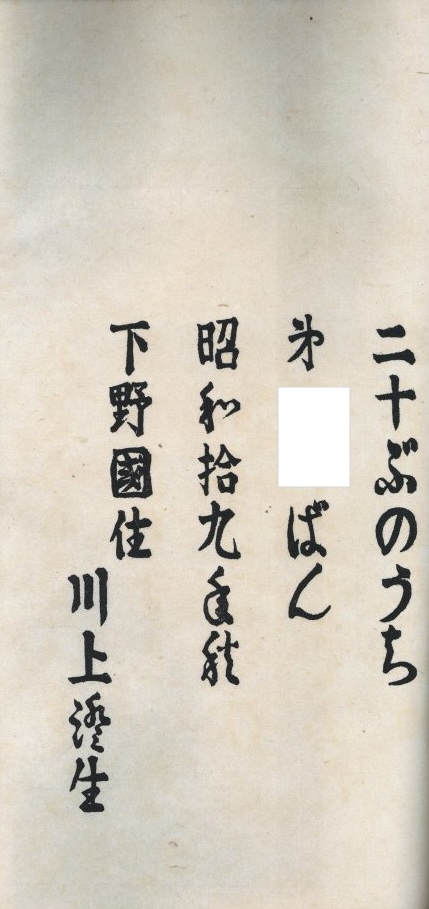 二十ぶのうち
㐧 ばん
昭和拾九年秋
下野國住
川上澄生